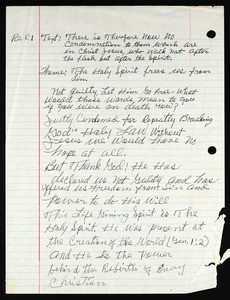 Ro. 8:1 Text: There is Therefore Now No
Condemnation to them which are
in Christ Jesus, who walk not after
the flesh but after the Spirit.
Theme: The Holy Spirit frees us from
Sin
Not Guilty Let Him Go free - What
Would those Words mean to you
if you were on death row?
Justly Condemned for Repeatly Breaking
God's Holy Law Without
Jesus we Would Have No
Hope at all.
But Thank God! He Has
declared us Not Guilty and Has
offered us Freedom from Sin And
Power to do His Will
This Life Giving Spirit is The
Holy Spirit. He was present at
the Creation of the World (Gen 1:2)
And He Is the Power
behind the Rebirth of Every
Christian